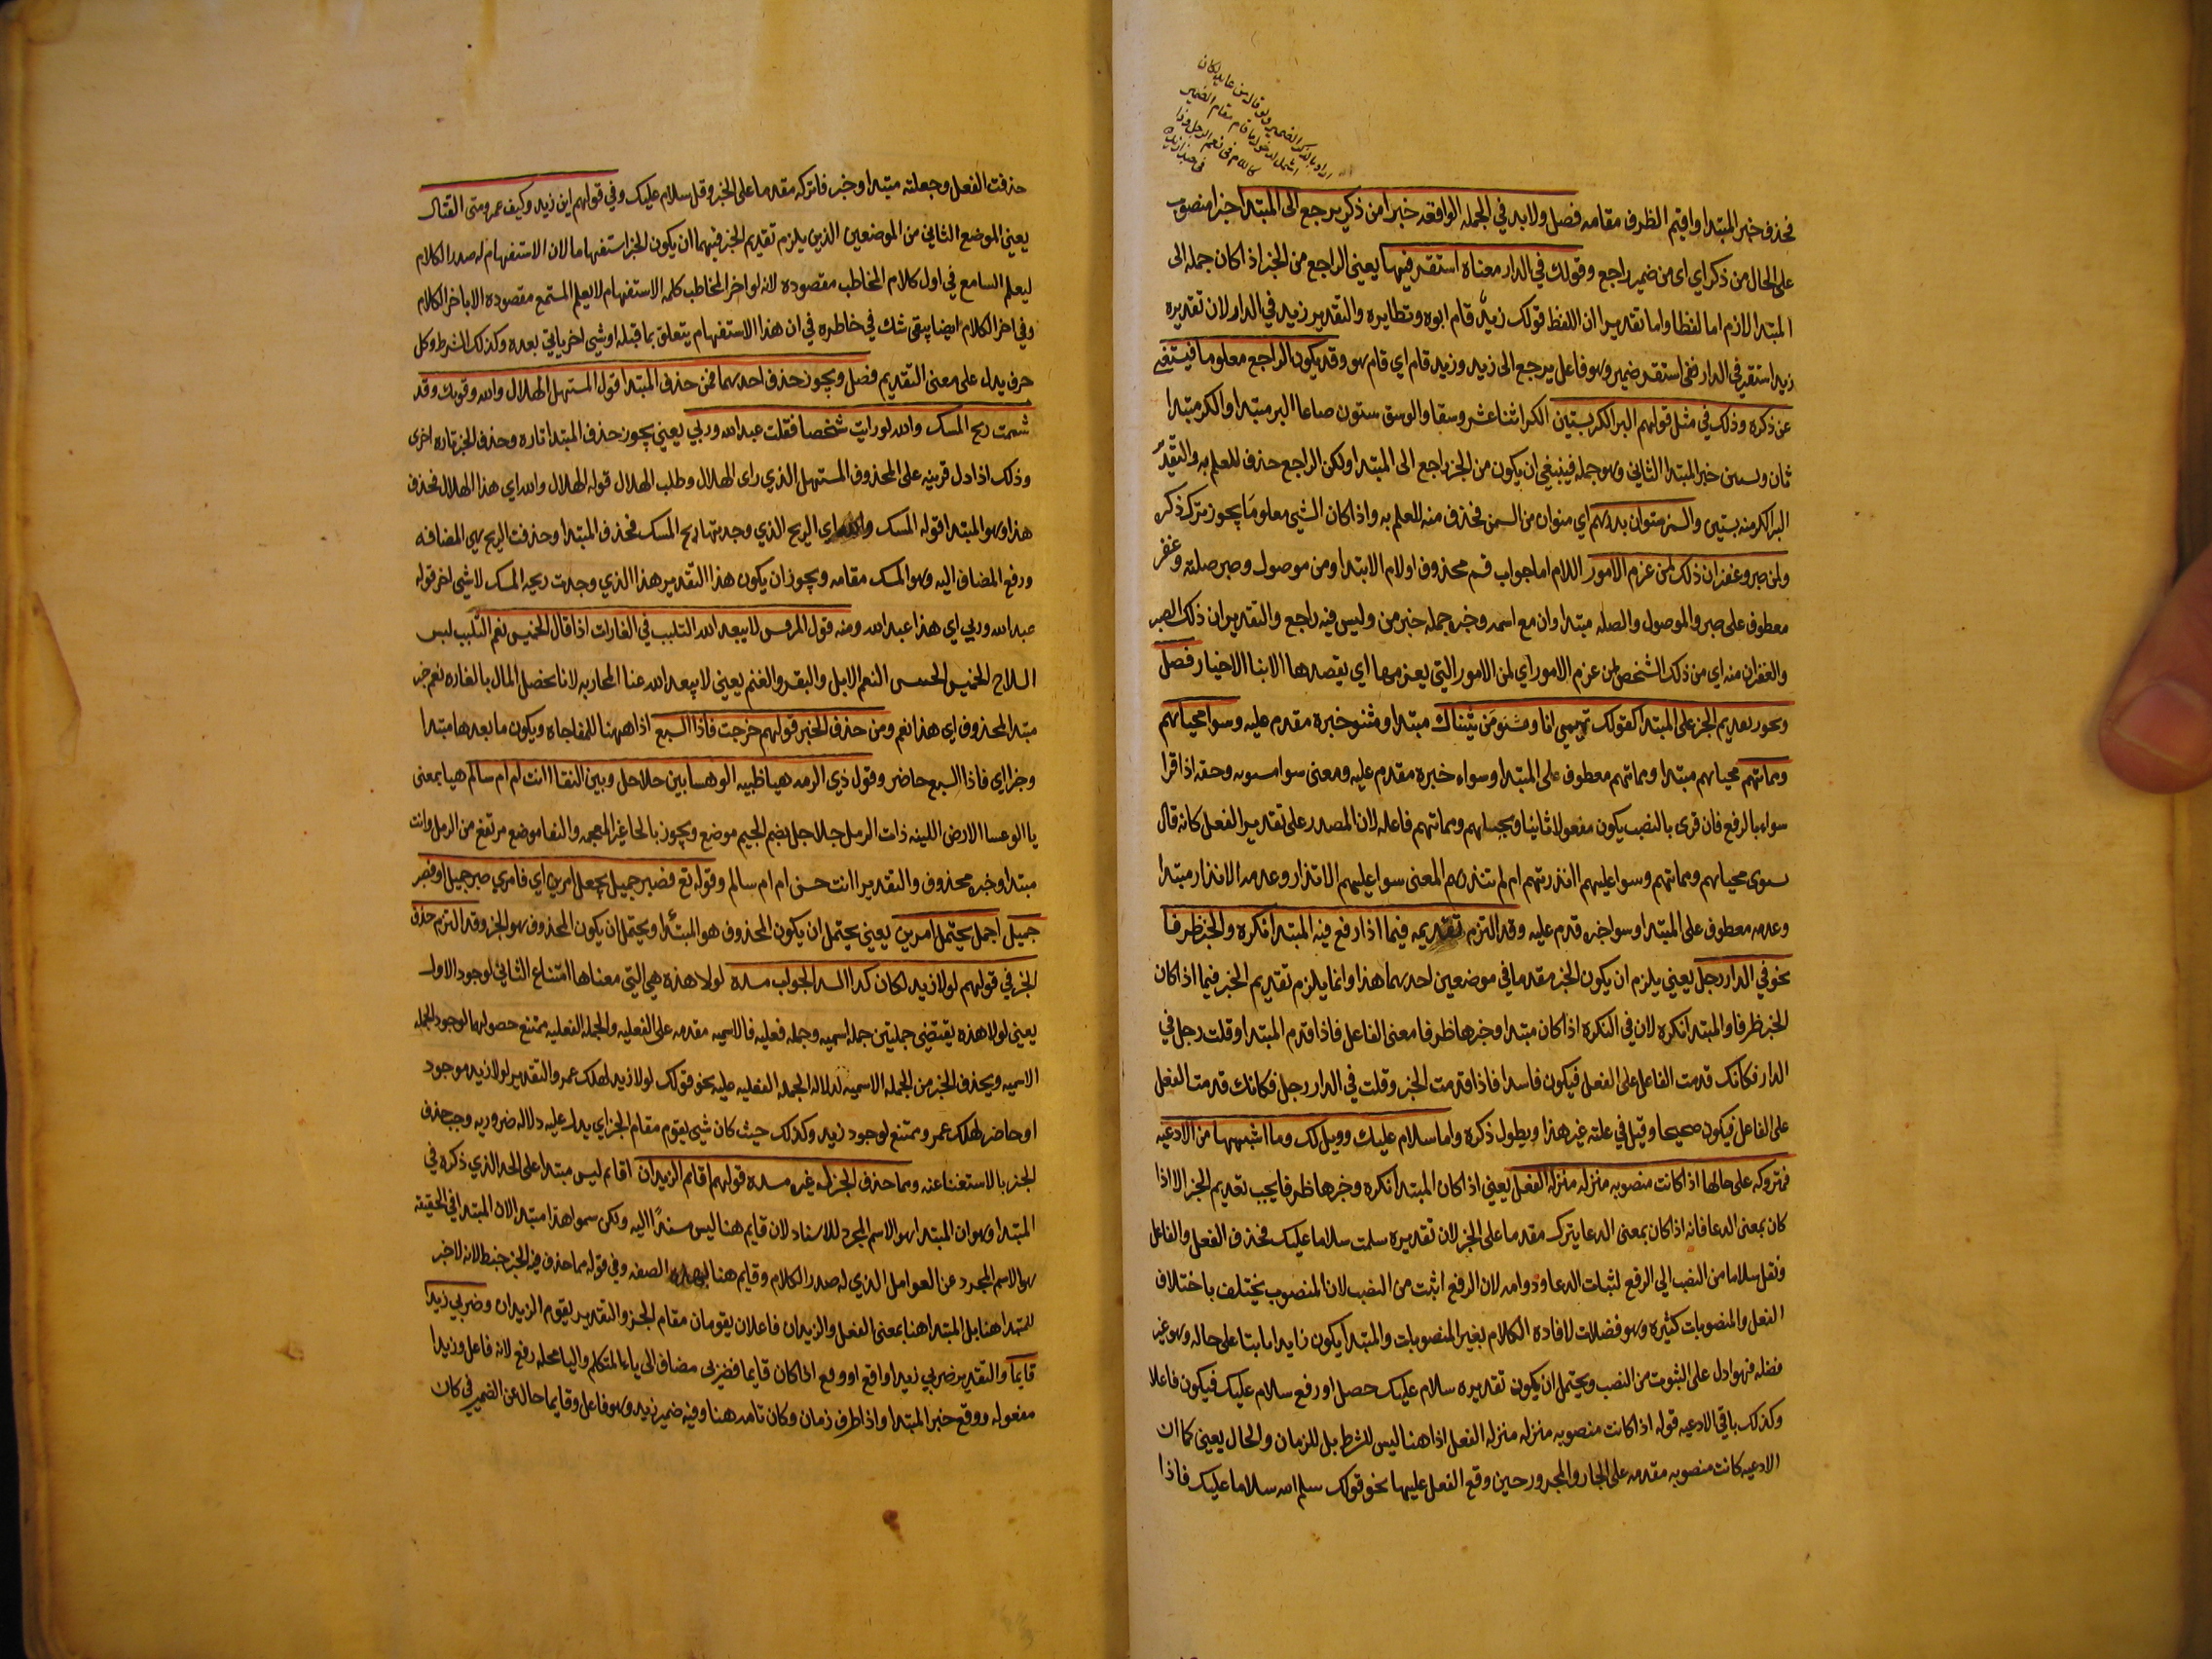 اراد بالذكر الضمير ولو قال من عايد لكان
اشمل لدخول ما قام مقام الضمير
كاللام في نعم الرجل وذا
في حبذا زيد
فحذف خبر المبتدا واقيم الظرف مقامه فصل ولابد في الجمله الواقعه خبرا من ذكر يرجع الى المبتدا خبرا منصوب
على الحال من ذكر اي اى من ضمير راجع وقولك في الدار معناه استقر فيها يعني الراجع من الخبر اذا كان جمله الى
المبتدا لازم اما لفظا واما تقديرا ان اللفظ قولك زيد قام ابوه ونظايره والتقدير زيد في الدار لان تقديره
زيد استقر في الدار ففي استقر ضمير وهو فاعل يرجع الى زيد وزيد قام اي قام هو وقد يكون الراجع معلوما فيستغنى
عن ذكره وذلك في مثل قولهم البر الكر بستين الكر اثنا عشر وسقا والوسق ستون صاعا البر مبتدا والكر مبتدا
ثان وبستين خبر المبتدا الثاني وهو جمله فينبغي ان يكون من الخبر راجع الى المبتدا ولكن الراجع حذف للعلم به والتقدير
البر الكر منه بستين والسمن منوان بدرهم اي منوان من السمن فحذف منه للعلم به واذا كان الشي معلوما يجوز ترك ذكره
ولمن صبر وغفر ان ذلك لمن عزم الامور اللام اما جواب قسم محذوف او لام الابتدا ومن موصول وصبر صلته وغفر
معطوف على صبر والموصول والصله مبتدا وان مع اسمه وخبره جمله خبر من وليس فيه راجع والتقدير ان ذلك الصبر
والغفران منه اي من ذلك الشخص لمن عزم الامور اي لمن الامور التي يعزمها اي يقصدها الابنا الاخيار فصل
ويجوز تقديم الخبر على المبتدا كقولك تميمي انا ومشنو من يشناك مبتدا ومشنو خبره مقدم عليه وسوا محياهم
ومماتهم محياهم مبتدا ومماتهم معطوف على المبتدا وسواء خبره مقدم عليه ومعنى سوا مستويه وحقه اذا قرا
سواء بالرفع فان قرى بالنصب يكون مفعولا ثانيا ومحياهم ومماتهم فاعله لان المصدر على تقدير الفعل كانه قال
يسوى محياهم ومماتهم وسوا عليهم اانذرتهم ام لم تنذرهم المعنى سوا عليهم الانذار وعدمه الانذار مبتدا
وعدمه معطوف على المبتدا وسوا خبره قدم عليه وقد التزم تقديمه فيما اذا وقع فيه المبتدا نكره والخبر ظرفا
نحو في الدار رجل يعني يلزم ان يكون الخبر مقدما في موضعين احدهما هذا وانما يلزم تقديم الخبر فيما اذا كان
الخبر ظرفا والمبتدا نكره لان في النكره اذا كان مبتدا وخبرها ظرفا معنى الفاعل فاذا قدم المبتدا وقلت رجل في
الدار فكانك قدمت الفاعل على الفعل فيكون فاسدا فاذا قدمت الخبر وقلت في الدار رجل فكانك قدمت الفعل
على الفاعل فيكون صحيحا وقيل في علته غير هذا ويطول ذكره واما سلام عليك وويل لك وما اشبههما من الادعيه
فمتروكه على حالها اذا كانت منصوبه منزله منزلة الفعل يعني اذا كان المبتدا نكره وخبرها ظرفا يجب تقديم الخبر الا اذا
كان بمعنى الدعا فانه اذا كان بمعنى الدعا يترك مقدما على الخبر لان تقديره سلمت سلاما عليك فحذف الفعل والفاعل
ونقل سلاما من النصب الى الرفع لثبات الدعا ودوامه لان الرفع اثبت من النصب لان المنصوب يختلف باختلاف
الفعل والمنصوبات كثيره وهو فضلات لافاده الكلام بغير المنصوبات والمبتدا يكون زايدا ثابتا على حاله وهو غير
فضله فهو ادل على الثبوت من النصب ويحتمل ان يكون تقديره سلام عليك حصل او رفع سلام عليك فيكون فاعلا
وكذلك باقي الادعيه قوله اذا كانت منصوبه منزله منزله الفعل اذا هنا ليس للشرط بل للزمان والحال يعني كما ان
الادعيه كانت منصوبه مقدمه على الجار والمجرور حين وقع الفعل عليها نحو قولك سلم الله سلاما عليك فاذا
حذفت الفعل وجعلته مبتدا وخبر فاتركه مقدما على الخبر وقل سلام عليك وفي قولهم اين زيد وكيف عمرو ومتى القتال
يعني الموضع الثاني من الموضعين الذين يلزم تقديم الخبر فيهما ان يكون الخبر استفهاما لان الاستفهام له صدر الكلام
ليعلم السامع في اول كلام المخاطب مقصوده لانه لو اخر المخاطب كلمه الاستفهام لا يعلم المستمع مقصوده الا باخر الكلام
وفي اخر الكلام ايضا يبقى شك في خاطره في ان هذا الاستفهام يتعلق بما قبله او شي اخر ياتي بعده وكذلك الشرط وكل
حرف يدل على معنى التقديم فصل ويجوز حذف احدهما فمن حذف المبتدا قول المستهل الهلال والله وقولك وقد
شممت ريح المسك والله او رايت شخصا فقلت عبد الله وربي يعني يجوز حذف المبتدا تاره وحذف الخبر تاره اخرى
وذلك اذا دل قرينه على المحذوف المستهل الذي راى الهلال وطلب الهلال قوله الهلال والله اي هذا الهلال فحذف
هذا وهو المبتدا قوله المسك والله اي الريح الذي وجدتها ريح المسك فحذف المبتدا وحذفت الريح هي المضافه
ورفع المضاف اليه وهو المسك مقامه ويجوز ان يكون هذا التقدير هذا الذي وجدت ريحه المسك لا شي اخر قوله
عبد الله وربي اي هذا عبد الله ومنه قول المرقش لا يبعد الله التلبب في الغارات اذا قال الخميس نعم التلبب لبس
السلاح الخميس الجيش النعم الابل والبقر والغنم يعني لا يبعد الله عنا المحاربه لانا نحصل المال بالغاره نعم خبر
مبتدا لمحذوف اي هذا نعم ومن حذف الخبر قولهم خرجت فاذا السبع اذا ههنا للمفاجاه ويكون ما بعدها مبتدا
وخبر اي فاذا السبع حاضر وقول ذي الرمه هيا ظبيه الوعسا بين حلاحل وبين النقا اانت ام ام سالم هيا بمعنى
يا الوعسا الارض اللينه ذات الرمل جلاجل بضم الجيم موضع ويجوز بالحا غير المعجمه والنقا موضع مرتفع من الرمل وانت
مبتدا وخبره محذوف والتقدير اانت حسن ام ام سالم وقوله تع فصبر جميل يحتمل امرين اي فامري صبر جميل او فصبر
جميل اجمل يحتمل امرين يعني يحتمل ان يكون المحذوف هو المبتدا ويحتمل ان يكون المحذوف هو الخبر وقد التزم حذف
الخبر في قولهم لولا زيد لكان كذا لسد الجواب مسده لولا هذه هي التي معناها امتناع الثاني لوجود الاول
يعني لولا هذه يقتضي جملتين جمله اسميه وجمله فعليه فالاسميه مقدمه على الفعليه والجمله الفعليه ممتنع حصولها لوجود الجمله
الاسميه ويحذف الخبر من الجمله الاسميه لدلاله الجمله الفعليه عليه نحو قولك لولا زيد لهلك عمر والتقدير لولا زيد موجود
او حاضر لهلك عمر وممتنع لوجود زيد وكذلك حيث كان شي يقوم مقام الخبر اي يدل عليه دلاله ضروريه وجب حذف
الخبر بالاستغنا عنه ومما حذف الخبر لسد غيره مسده قولهم اقايم الزيدان اقايم ليس مبتدا على الحد الذي ذكره في
المبتدا وهو ان المبتدا هو الاسم المجرد للاسناد لان قايم هنا ليس مسندا اليه ولكن سموا هذا مبتدا لان المبتدا في الحقيقه
هو الاسم المجرد عن العوامل الذي له صدر الكلام وقايم هنا بهذه الصفه وفي قوله مما حذف فيه الخبر خبط لانه لا خبر
للمبتدا هنا بل المبتدا هنا بمعنى الفعل والزيدان فاعلان يقومان مقام الخبر والتقدير ايقوم الزيدان وضربي زيدا
قايما والتقدير ضربي زيدا واقع او وقع اذا كان قايما فضربي مضاف الى ياء المتكلم واليا محله رفع لانه فاعل وزيدا
مفعوله ووقع خبر المبتدا واذا ظرف زمان وكان تامه هنا وفيه ضمير زيد وهو فاعل وقايما حال عن الضمير في كان